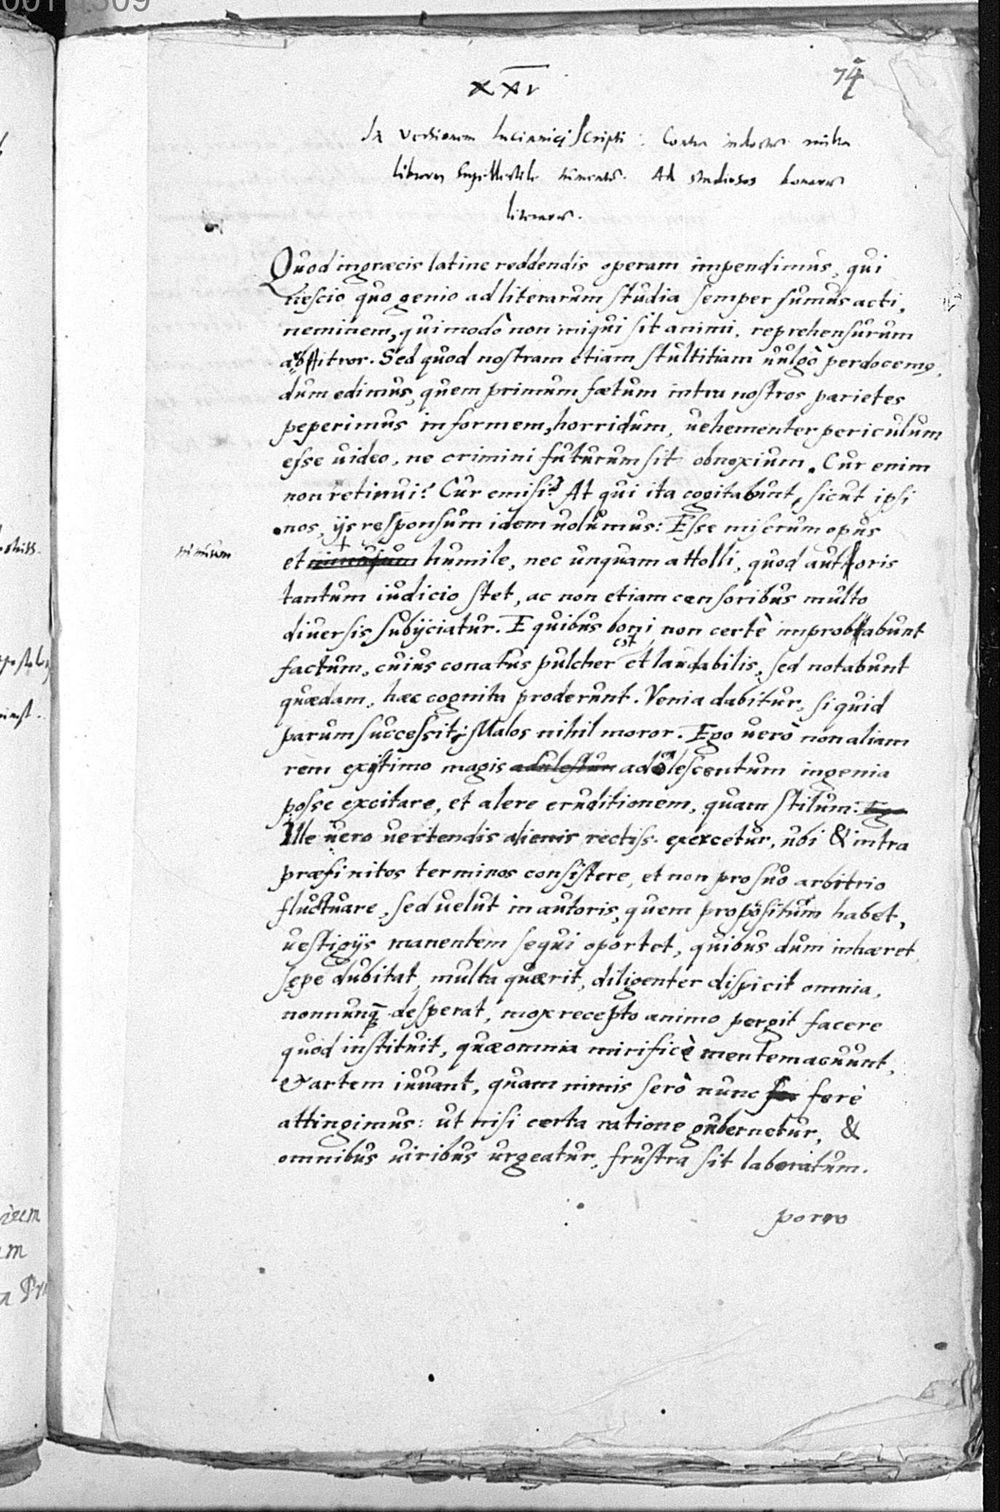 74
XXV
In versionem Lucianici scripti: Contra indoctos multa
librorum supellectile tumentes. Ad studiosos bonarum
literarum.
Quod in græcis latine reddendis operam impendimus, qui
nescio quo genio ad literarum studia semper sumus acti,
neminem, qui modò non iniqui sit animi, reprehensurum
arbitror. Sed quod nostram etiam stultitiam uulgò perdocemus,
dum edimus, quem primum fætum intra nostros parietes
peperimus informem, horridum, uehementer periculum
esse uideo, ne crimini futurum sit obnoxium. Cur enim
non retinui? Cur emisi? At qui ita cogitabunt, sicut ipsi
nos, ijs responsum idem uolumus: Esse miserum opus
nimium
et humile, nec unquam attolli, quod autoris
tantum iudicio stet, ac non etiam censoribus multo
diuersis subijciatur. E quibus boni non certè improbabunt
factum, cuius conatus pulcher est et laudabilis, sed notabunt
quædam, hæc cognita proderunt. Venia dabitur, si quid
parum successit: Malos nihil moror. Ego uerò non aliam
rem existimo magis adolescentum ingenia
posse excitare, et alere eruditionem, quam stilum.
Ille uero uertendis alienis rectiss. exercetur, ubi & intra
præfinitos terminos consistere, et non pro suo arbitrio
fluctuare, sed uelut in autoris, quem propositum habet,
uestigijs manentem sequi oportet, quibus dum inhæret
sępe dubitat, multa quærit, diligenter dispicit omnia,
nonnunq̃ desperat, mox recepto animo pergit facere
quod instituit, quæ omnia mirificè mentem acuunt,
& artem iuuant, quam nimis serò nunc ferè
attingimus: ut nisi certa ratione gubernetur, &
omnibus uiribus urgeatur, frustra sit laboratum.
porro